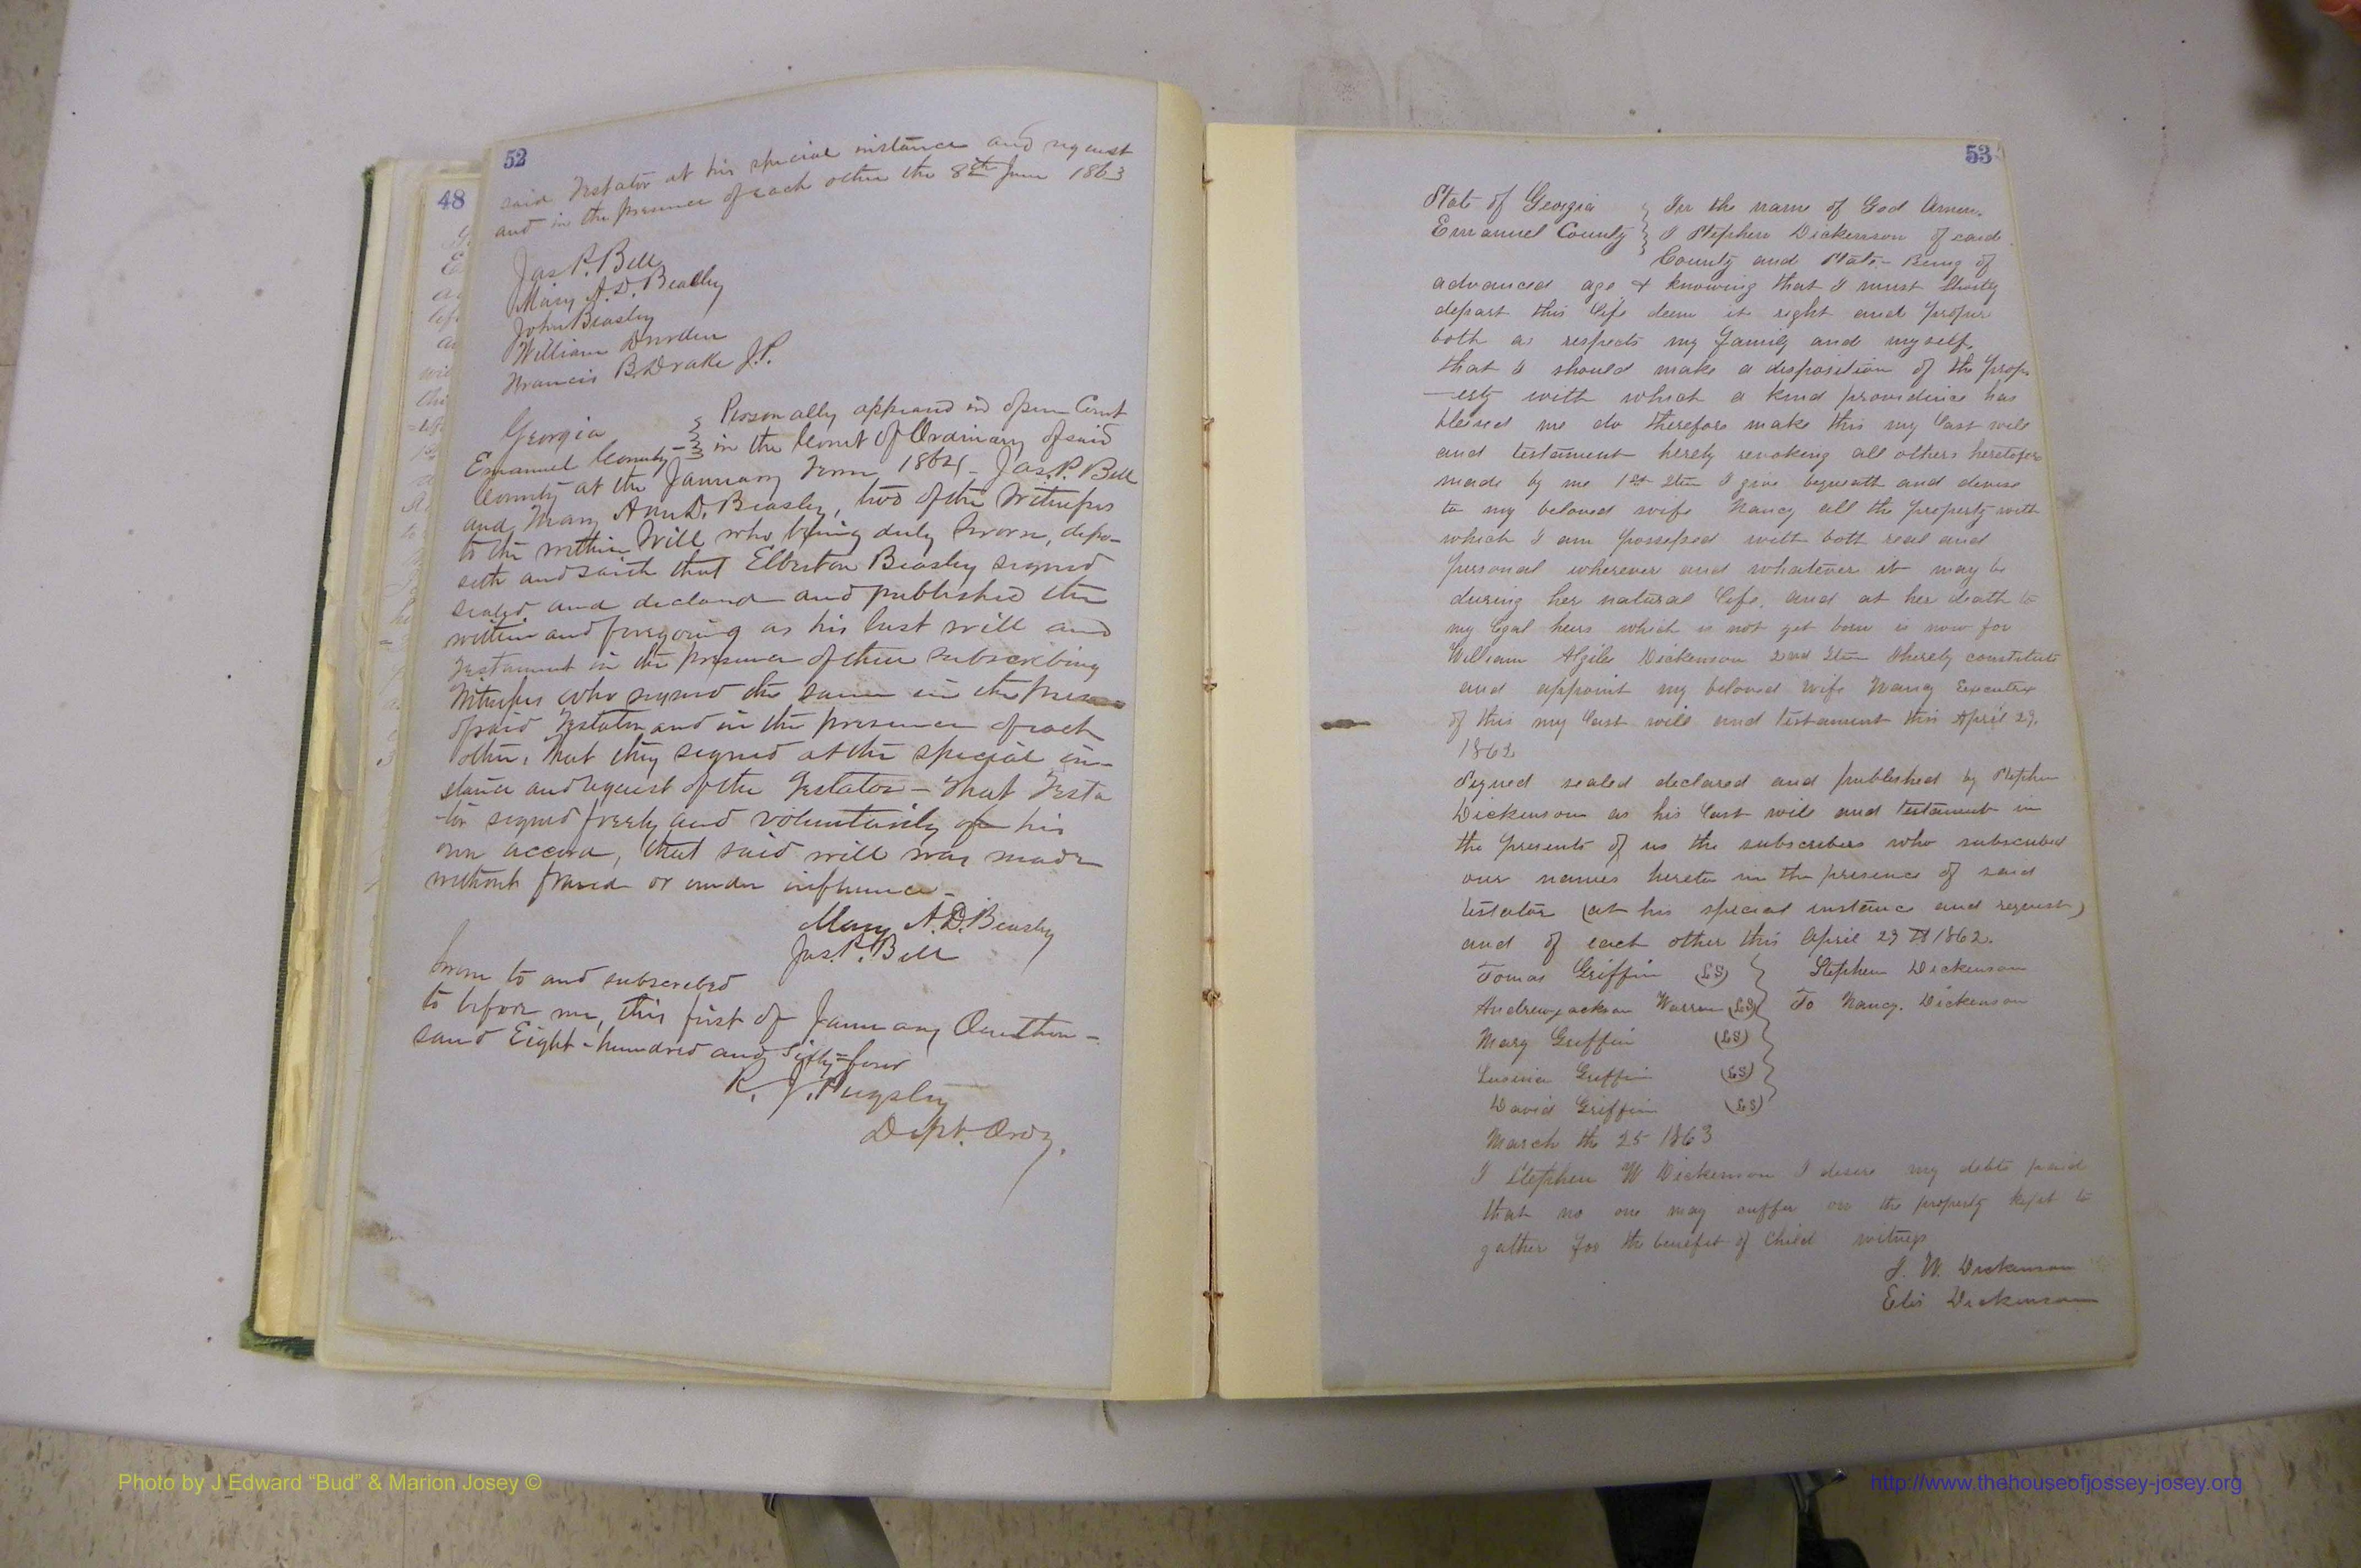 52
said Testator at his special instance and request
and in the presence of each other the 8th June 1863
Jas P. Bell
Mary A. D. Beasley
John Beasley
William Durden
Francis B. Drake J.P.
Personally appeared in open Court
Georgia
Emanuel County in the Court of Ordinary of said
County at the January Term 1864 - Jas. P. Bell
and Mary Ann D. Beasley, two of the Witnesses
to the within Will who being duly sworn, depo-
seth and saith that Elberton Beasley signed
sealed and declared and published the
within and foregoing as his last will and
Testament in the presence of these subscribing
Witnesses who signed the same in the presence
of said Testator and in the presence of each
other, that they signed at the special in-
stance and request of the Testator - that Testa
-tor signed freely and voluntarily of his
own accord, that said will was made
without fraud or undue influence -
Mary A. D. Beasley
Jas. P. Bell
Sworn to and subscribed
to before me, this first of January One thou-
sand Eight-hundred and Sixty=four
R. J. Pugsley
Dept. Ordy.
48
53
State of Georgia } In the name of God Amen.
Emanuel County } I Stephen Dickenson of said
County and State - Being of
advanced age & knowing that I must shortly
depart this life deem it right and proper
both as respects my family and myself,
that I should make a disposition of the prop
-erty with which a kind providence has
blessed me do therefore make this my last will
and testament hereby revoking all others heretofore
made by me 1st Item I give bequeath and devise
to my beloved wife Nancy all the property with
which I am possessed with both real and
personal wherever and whatever it may be
during her natural life, and at her death to
my legal heirs which is not yet born is now for
William Dickenson 2nd Item I hereby constitute
and appoint my beloved wife Nancy Executrix
of this my last will and testament this April 29,
1862
Signed sealed declared and published by Stephen
Dickenson as his last will and testament in
the presents of us the subscribers who subscribed
our names hereto in the presence of said
testator (at his special instance and request)
and of each other this April 29 1862.
Tomas Griffin (LS) } Stephen Dickenson
Andrewjackson Warren (LS) To Nancy. Dickenson
Mary Griffin (LS)
Griffin (LS)
David Griffin (LS)
March the 25 1863
I Stephen W Dickenson I desire my debts paid
that no one may suffer the property kept to
gather for the benefit of Child witness
S. W. Dickenson
Dickenson
Photo by J Edward “Bud” & Marion Josey ©
http://www.thehouseofjossey-josey.org